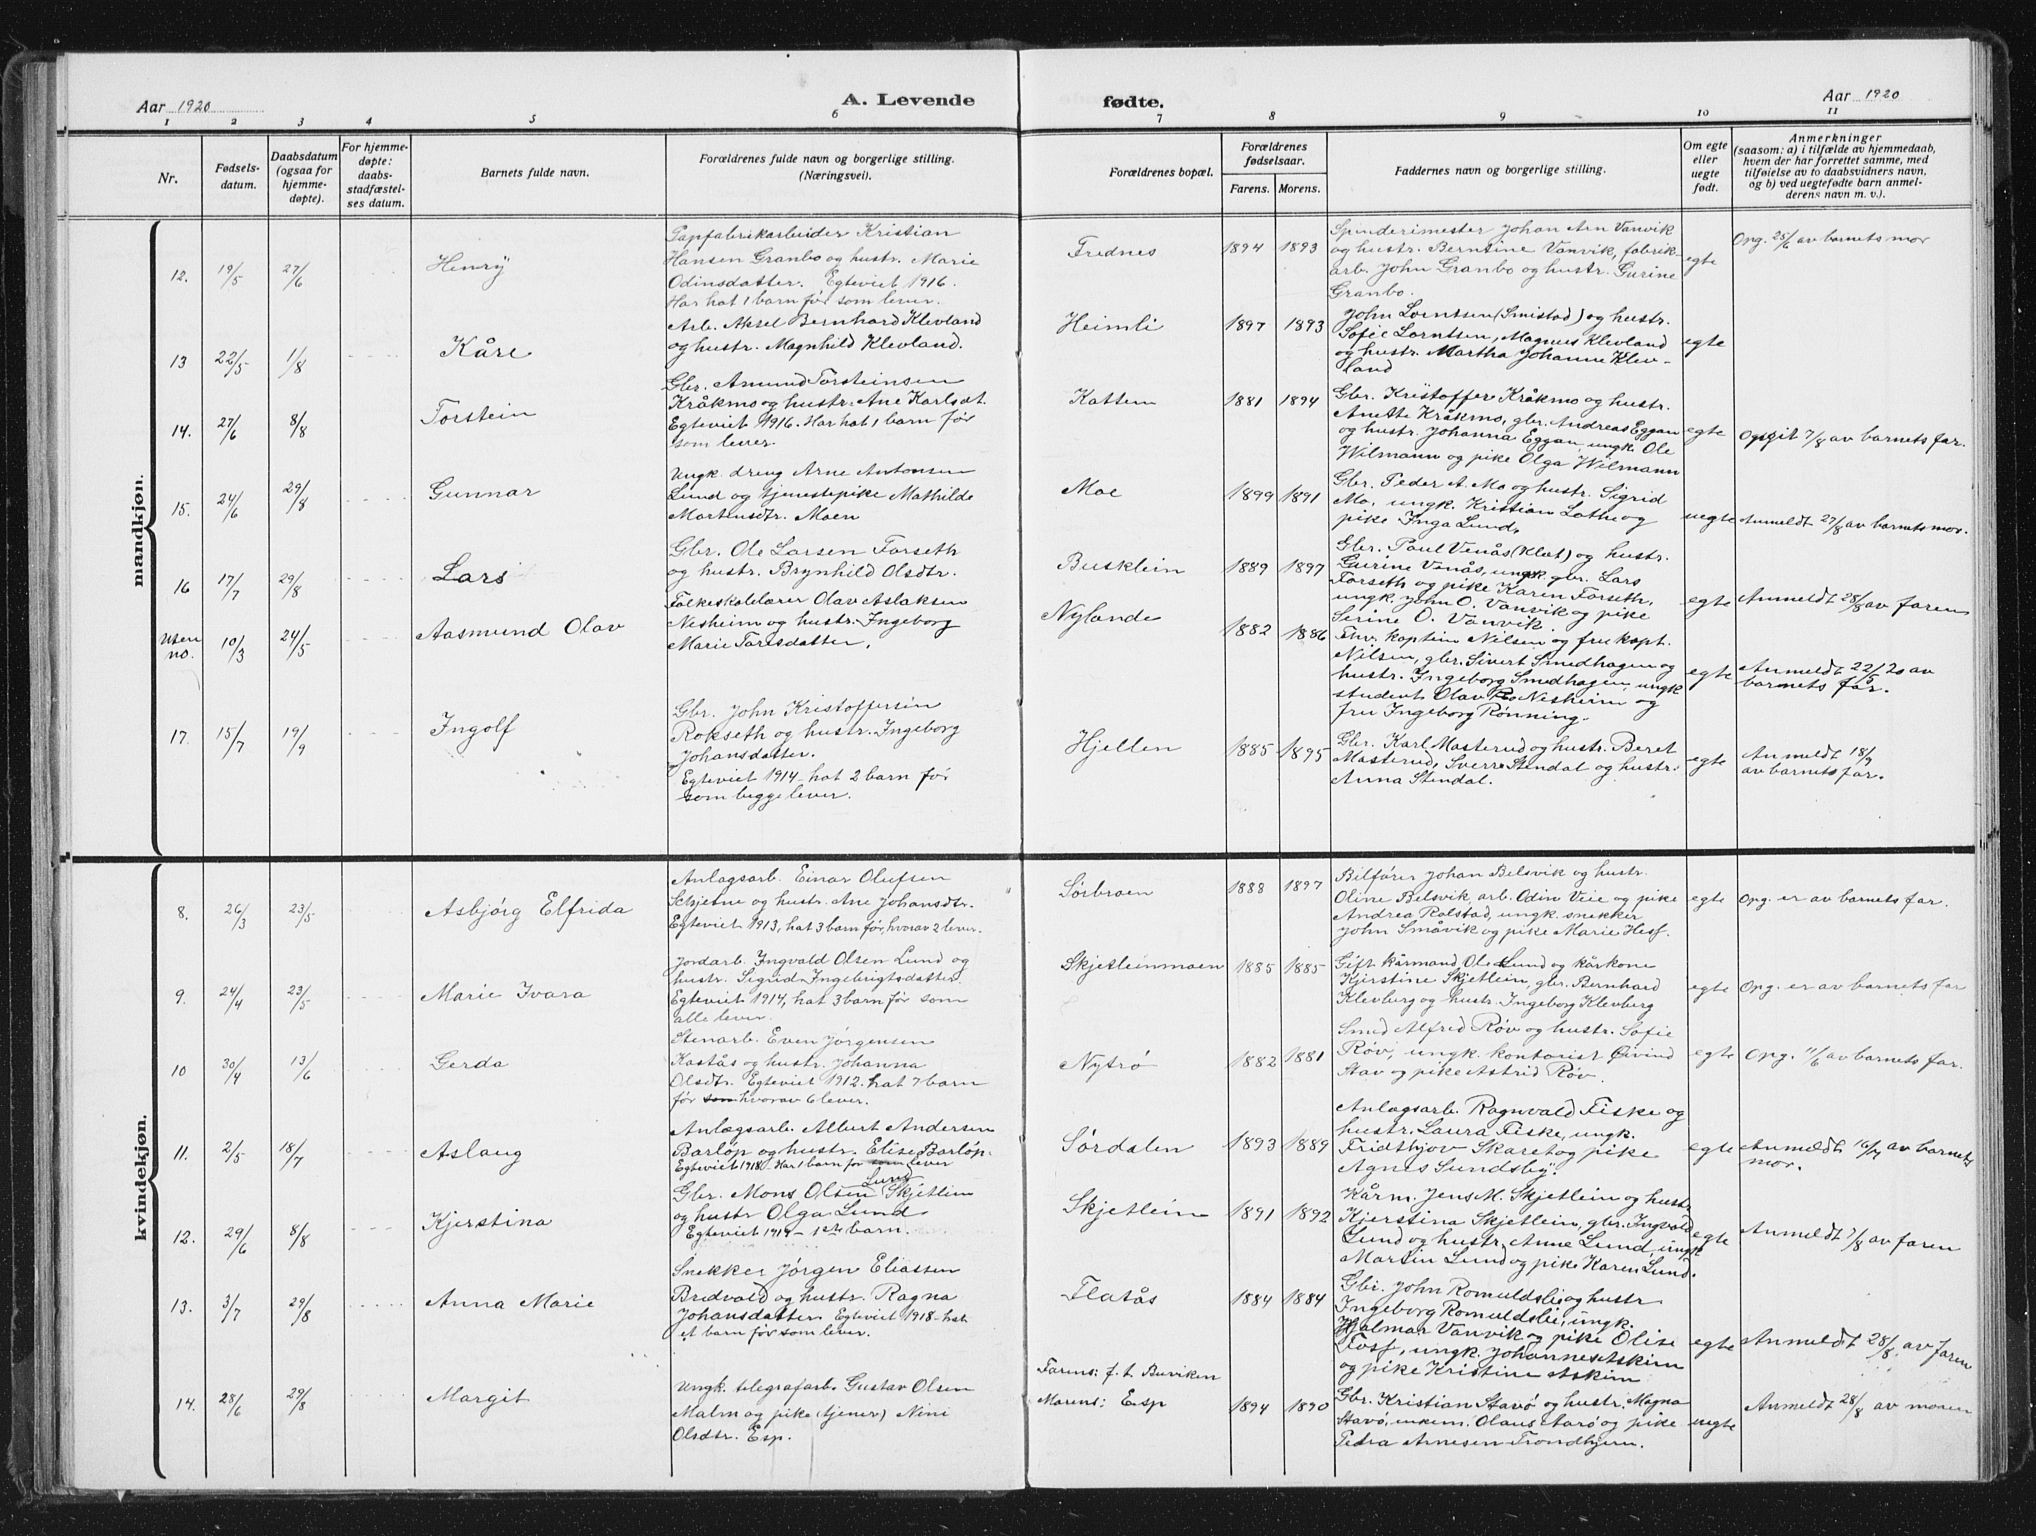 Aar 1920
A. Levende
fødte.
Aar 1920
1 2 3 4 5 6 7 8 9 10 11
Nr.
Fødsels-
datum.
Daabsdatum
(ogsaa for
hjemme-
døpte).
For hjemme-
døpte:
daabs-
stadfæstel-
ses datum.
Barnets fulde navn.
Forældrenes fulde navn og borgerlige stilling.
(Næringsvei).
Forældrenes bopæl.
Forældrenes
fødselsaar.
Farens. Morens.
Faddernes navn og borgerlige stilling.
Om egte
eller
uegte
født.
Anmerkninger
(saasom: a) i tilfælde av hjemmedaab,
hvem der har forrettet samme, med
tilføielse av to daabsvidners navn,
og b) ved uegtefødte barn anmel-
derens navn m. v.).
mandkjøn.
12. 19/5 27/6
Henry
Papfabrikarbeider Kristian
Hansen Granbo og hustr. Marie
Odinsdatter. Egteviet 1916.
Har hat 1 barn før som lever.
Frednes
1894 1893
Spinderimester Johan Arn Vanvik
og hustr. Berntine Vanvik, fabrik-
arb. John Granbo og hustr. Gurine
Granbo.
egte
Opg. 25/6 av barnets mor
13 22/5 1/8
Kåre
Arb. Aksel Bernhard Klevland
og hustr. Magnhild Klevland.
Heimli
1897 1893
John Lorntsen (Smistad) og hustr.
Sofie Lorntsen, Magnus Klevland
og hustr. Martha Johanne Klev-
land
egte
14. 27/6 8/8
Torstein
Gbr. Amund Torsteinsen
Kråkmo og hustr. Ane Karlsdt.
Egteviet 1916. Har hat 1 barn før
som lever.
Kattem
1881 1894
Gbr. Kristoffer Kråkmo og hustr.
Anette Kråkmo, gbr. Andreas Eggan
og hustr. Johanna Eggan, ungk. Ole
Wilmann og pike Olga Wilmann
egte
Opgit 7/8 av barnets far.
15. 24/6 29/8
Gunnar
Ungk. dreng Arne Antonsen
Lund og tjenestepike Mathilde
Mortensdtr. Moen
Moe
1899 1891
Gbr. Peder A. Mo og hustr. Sigrid
Mo, ungk. Kristian Lothe og
pike Inga Lund.
uegte
Anmeldt 27/8 av barnets mor.
16 17/7 29/8
Lars
Gbr. Ole Larsen Forseth
og hustr. Brynhild Olsdtr.
Busklein
1889 1897
Gbr. Paul Venås (Klæt) og hustr.
Gurine Venås, ungk. gbr. Lars
Forseth og pike Karen Forseth,
ungk. John O. Vanvik og pike
Serine O. Vanvik.
egte
Anmeldt 28/8 av faren
Uten
no. 10/3 24/5
Aasmund Olav
Folkeskolelærer Olav Aslaksen
Nesheim og hustr. Ingeborg
Marie Tarisdatter.
Nylande
1882 1886
Fhv. kaptein Nilsen og fru kapt.
Nilsen, gbr. Sivert Smedhagen og
hustr. Ingeborg Smedhagen, ungk
student Olav Nesheim og
fru Ingeborg Rönning.
egte
Anmeldt 22/5 20 av
barnets får.
17. 15/7 19/9
Ingolf
Gbr. John Kristoffersen
Rokseth og hustr. Ingeborg
Johansdatter.
Egteviet 1914 - hat 2 barn før
som begge lever.
Hjellen
1885 1895
Gbr. Karl Masterud og hustr. Beret
Masterud, Sverre Stendal og hustr.
Anna Stendal.
egte
Anmeldt 18/9
av barnets far.
kvindekjøn.
8. 26/3 23/5
Asbjörg Elfrida
Anlagsarb. Einar Olufsen
Schjetne og hustr. Ane Johansdtr.
Egteviet 1913, hat 3 barn før, hvorav 2 lever.
Sörbroen
1888 1897
Bilförer Johan Belsvik og hustr.
Oline Belsvik, arb. Odin Veie og pike
Andrea Rolstad, ungk. snekker
John Småvik og pike Marie Hesf.
egte
Opg. er av barnets far.
9. 24/4 23/5
Marie Ivara
Jordarb. Ingvald Olsen Lund og
hustr. Sigrid Ingebrigtsdatter.
Egteviet 1914, hat 3 barn før som
alle lever.
Skjetleinmoen
1885 1885
Gift kårmand Ole Lund og kårkone
Kjerstine Skjetlein, gbr. Bernhard
Klevberg og hustr. Ingeborg Klevberg
egte
Opg. er av barnets far
10 30/4 13/6
Gerda
Stenarb. Even Jørgensen
Kastås og hustr. Johanna
Olsdtr. Egteviet 1912. hat 7 barn
før som hvorav 6 lever.
Nytrø
1882 1881
Smed Alfred Røv og hustr. Sofie
Røv, ungk. kontorist Øivind
Stav og pike Astrid Røv.
egte
Opg. 11/6 av barnets far.
11. 2/5 18/7
Aslaug
Anlægsarb. Albert Andersen
Barløp og hustr. Elise Barløp.
Egteviet 1918. Har 1 barn før som lever
Sørdalen
1893 1889
Anlagsarb. Ragnvald Fiske og
hustr. Laura Fiske, ungk.
Fridthjov Skaret og pike
Agnes Sundsby.
egte
Anmeldt 16/7 av barnets
mor.
12. 29/6 8/8
Kjerstina
Gbr. Mons Olsen Lund Skjetlein
og hustr Olga Lund
Egteviet 1919 - 1ste barn.
Skjetlein
1891 1892
Kårm. Jens M. Skjetlein og hustr
Kjerstina Skjetlein, gbr. Ingvald
Lund og hustr. Anne Lund, ungk
Martin Lund og pike Karen Lund.
egte
Anmeldt 7/8 av faren
13. 3/7 29/8
Anna Marie
Snekker Jørgen Eliassen
Bredvald og hustr. Ragna
Johansdatter Egteviet 1918 - hat
et barn før som lever.
Flatås
1884 1884
Gbr. John Romuldslie og hustr
Ingeborg Romuldslie, ungk.
Hjalmar Vanvik og pike Olise
Tosf, ungk. Johannes Askim
og pike Kristine Askim
egte
Anmeldt 28/8 av faren
14. 28/6 29/8
Margit
Ungk. telegrafarb. Gustav Olsen
Malm og pike (tjener) Nini
Olsdtr. Esp.
Farens: f. t. Buviken
Morens: Esp
1894 1890
Gbr. Kristian Stavø og hustr. Magna
Stavø, enkem. Olaus Aarø og pike
Petra Arnesen Trondhjem.
uegte
Anmeldt 28/8 av moren